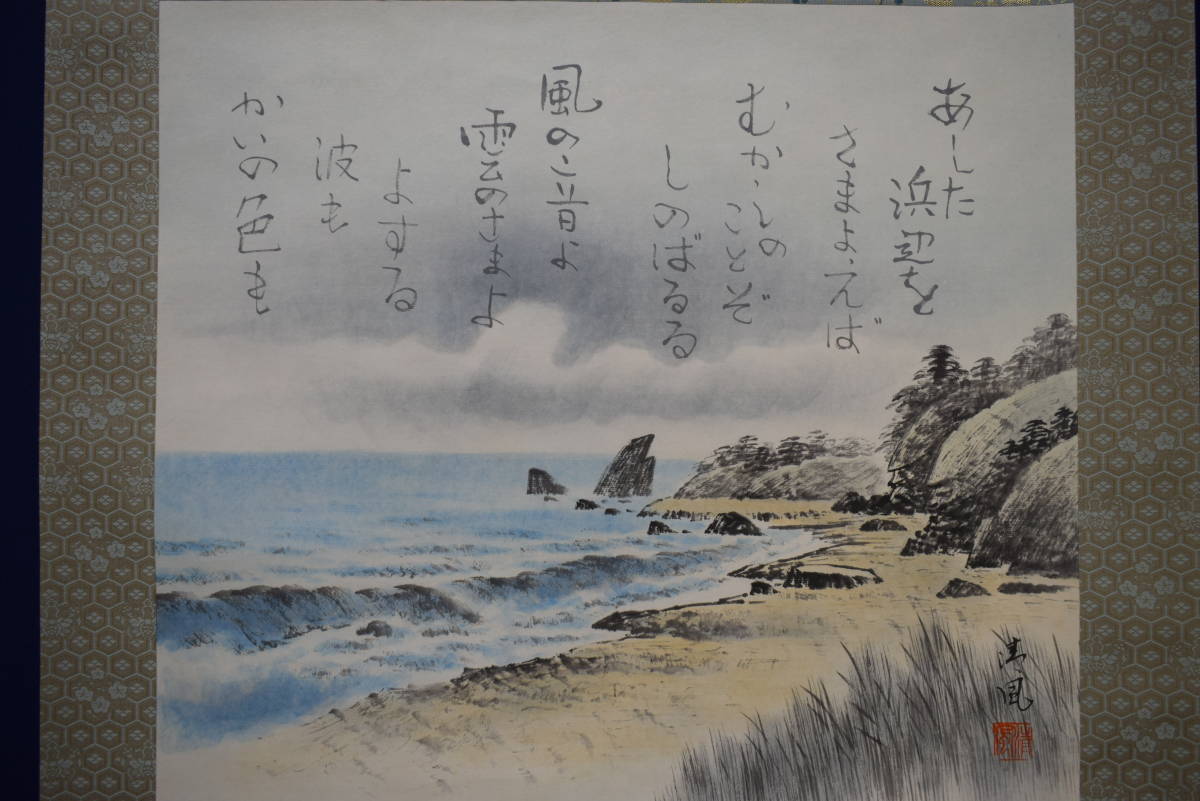 あした
浜辺を
さまよえば
むかしの
ことぞ
しのばるる
風の音よ
雲のさまよ
よする
波も
かいの色も
清風